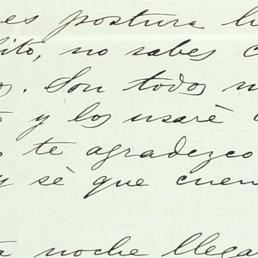 es postura
ito, no sabes
os. Son todos
y los usaré
te agradezco
y sé que cuen
noche llega